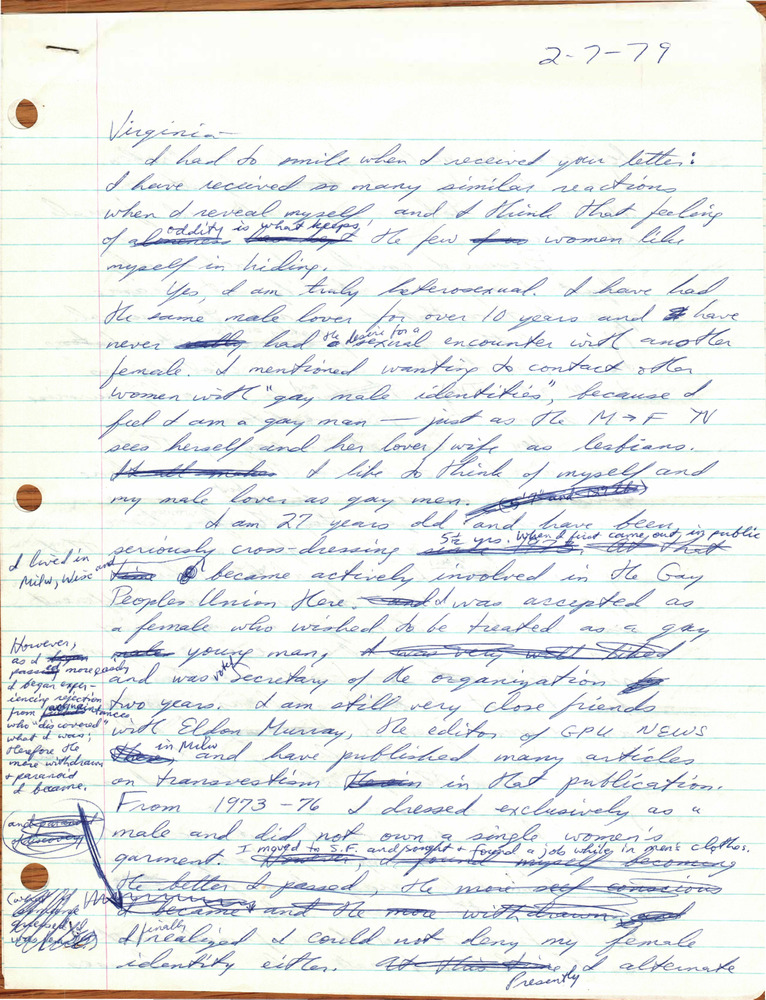 2-7-79
Virginia—
I had to smile when I received your letter:
I have recieved so many similar reactions
when I reveal myself and I think that feeling
of oddity is what keeps the few women like
myself in hiding.
Yes, I am truly heterosexual. I have had
the same male lover for over 10 years and have
never had the desire for a sexual encounter with another
female. I mentioned wanting to contact other
women with "gay male identities", because I
feel I am a gay man — just as the M→F TV
sees herself and her lover/wife as lesbians.
I like to think of myself and
my male lover as gay men.
I am 27 years old and have been
seriously cross-dressing 5½ yrs. When I first came out, in public
I lived in
Milw, Wisc and
became actively involved in the Gay
Peoples Union there. I was accepted as
a female who wished to be treated as a gay
young man,
and was voted secretary of the organization
two years. I am still very close friends
with Eldon Murray, the editor of GPU NEWS
in Milw and have published many articles
on transvestism in that publication.
From 1973-76 I dressed exclusively as a
male and did not own a single women's
garment. I moved to S.F. and sought + found a job while in men's clothes.
However,
as I
passed more easily
I began exper-
iencing rejection
from acquaintances
who "discovered"
what I was;
therefore the
more withdrawn
+ paranoid
I became.
I finally realized I could not deny my female
identity either. Presently I alternate